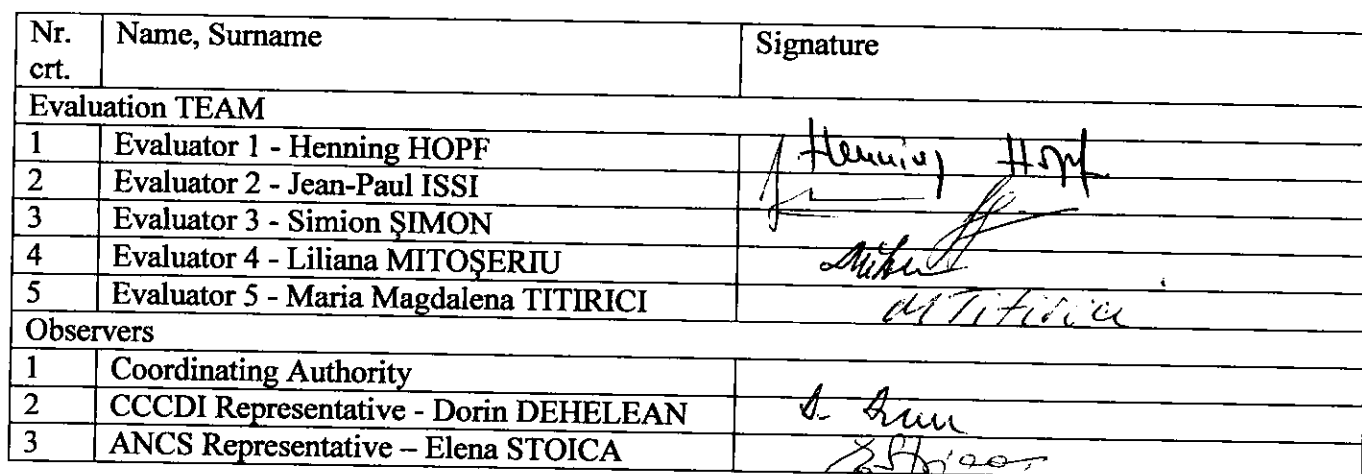 Nr. crt. Name, Surname Signature
Evaluation TEAM
1 Evaluator 1 - Henning HOPF Henning Hopf
2 Evaluator 2 - Jean-Paul ISSI
3 Evaluator 3 - Simion ŞIMON
4 Evaluator 4 - Liliana MITOŞERIU
5 Evaluator 5 - Maria Magdalena TITIRICI M Titirici
Observers
1 Coordinating Authority
2 CCCDI Representative - Dorin DEHELEAN
3 ANCS Representative – Elena STOICA EStoica